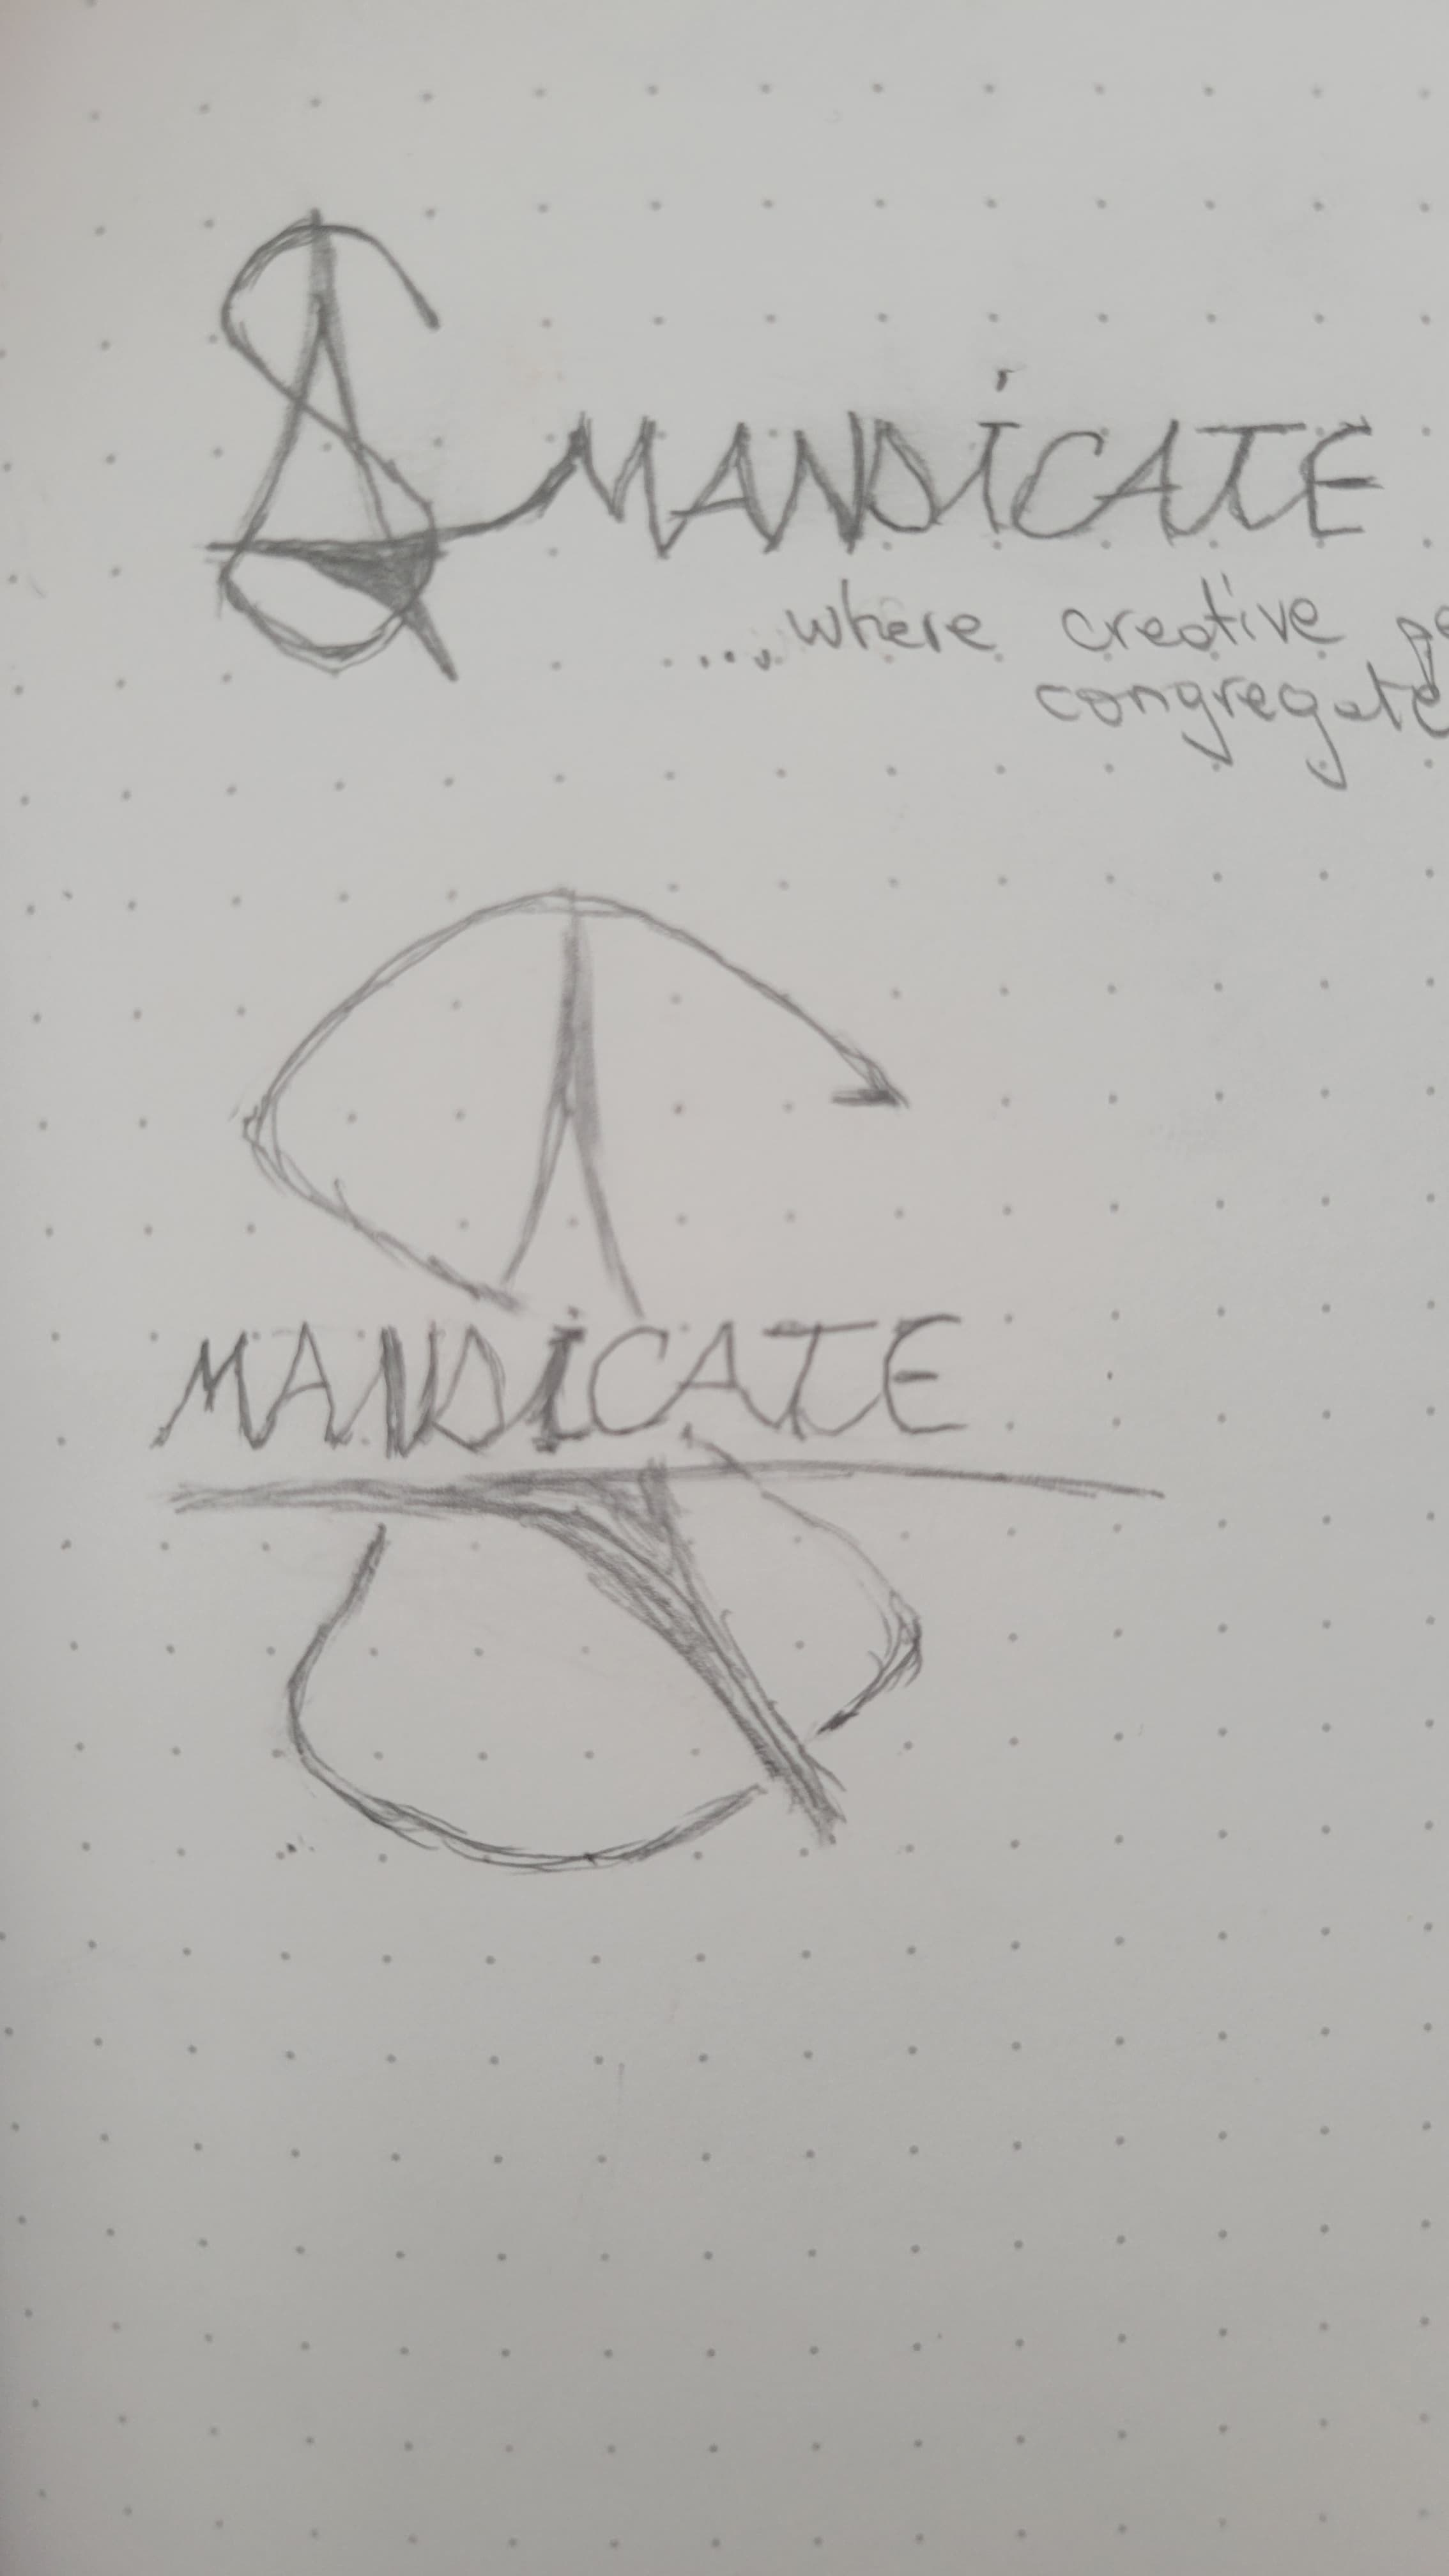 MANDICATE
...where creative
congregate
MANDICATE